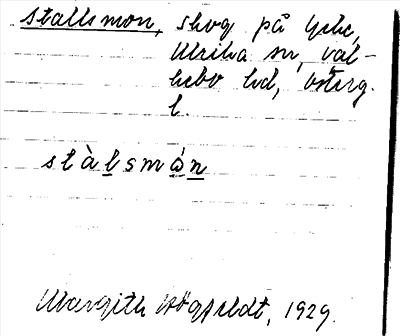 Stallsmon, skog på Yxhe,
Ulrika sn, Val-
kebo hd, Österg.
l.
stàlsmȯ̀n
Margith Högfeldt, 1929.